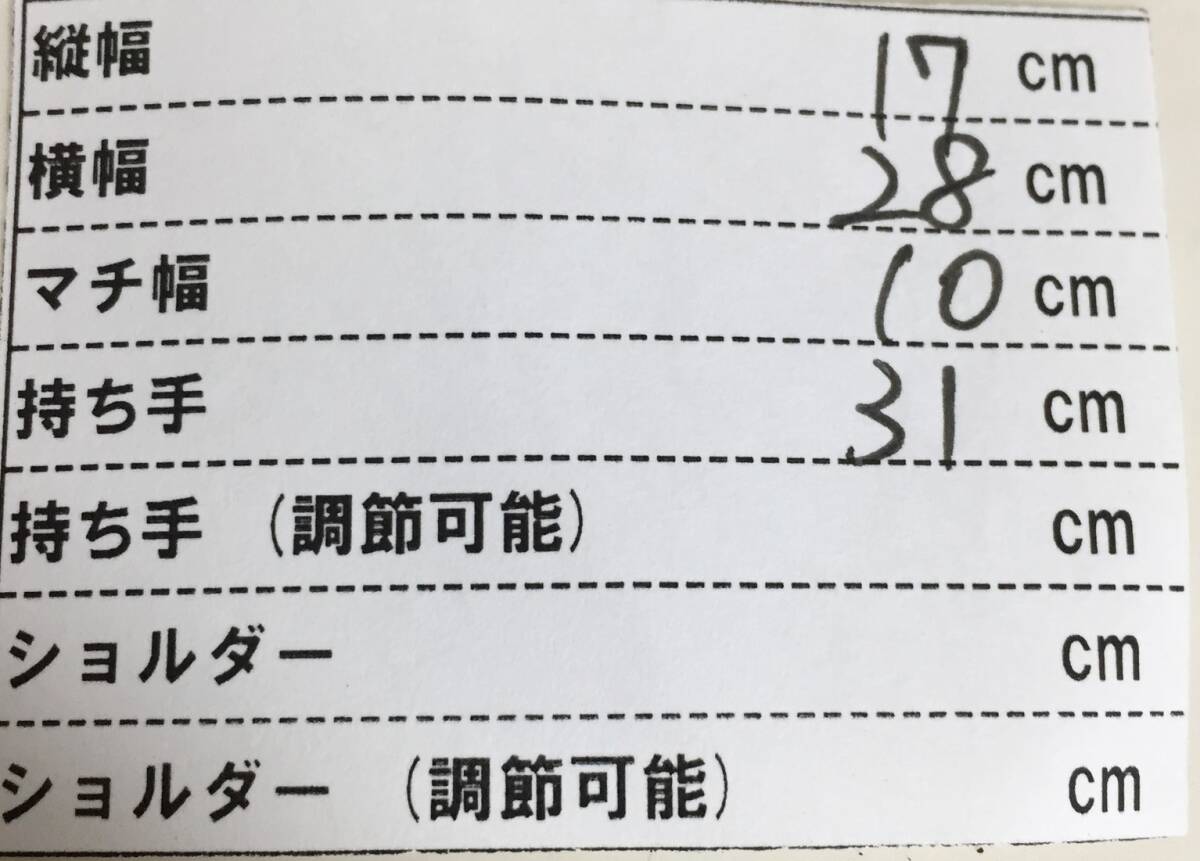 縦幅 17 cm
横幅 28 cm
マチ幅 10 cm
持ち手 31 cm
持ち手 (調節可能) cm
ショルダー cm
ショルダー (調節可能) cm